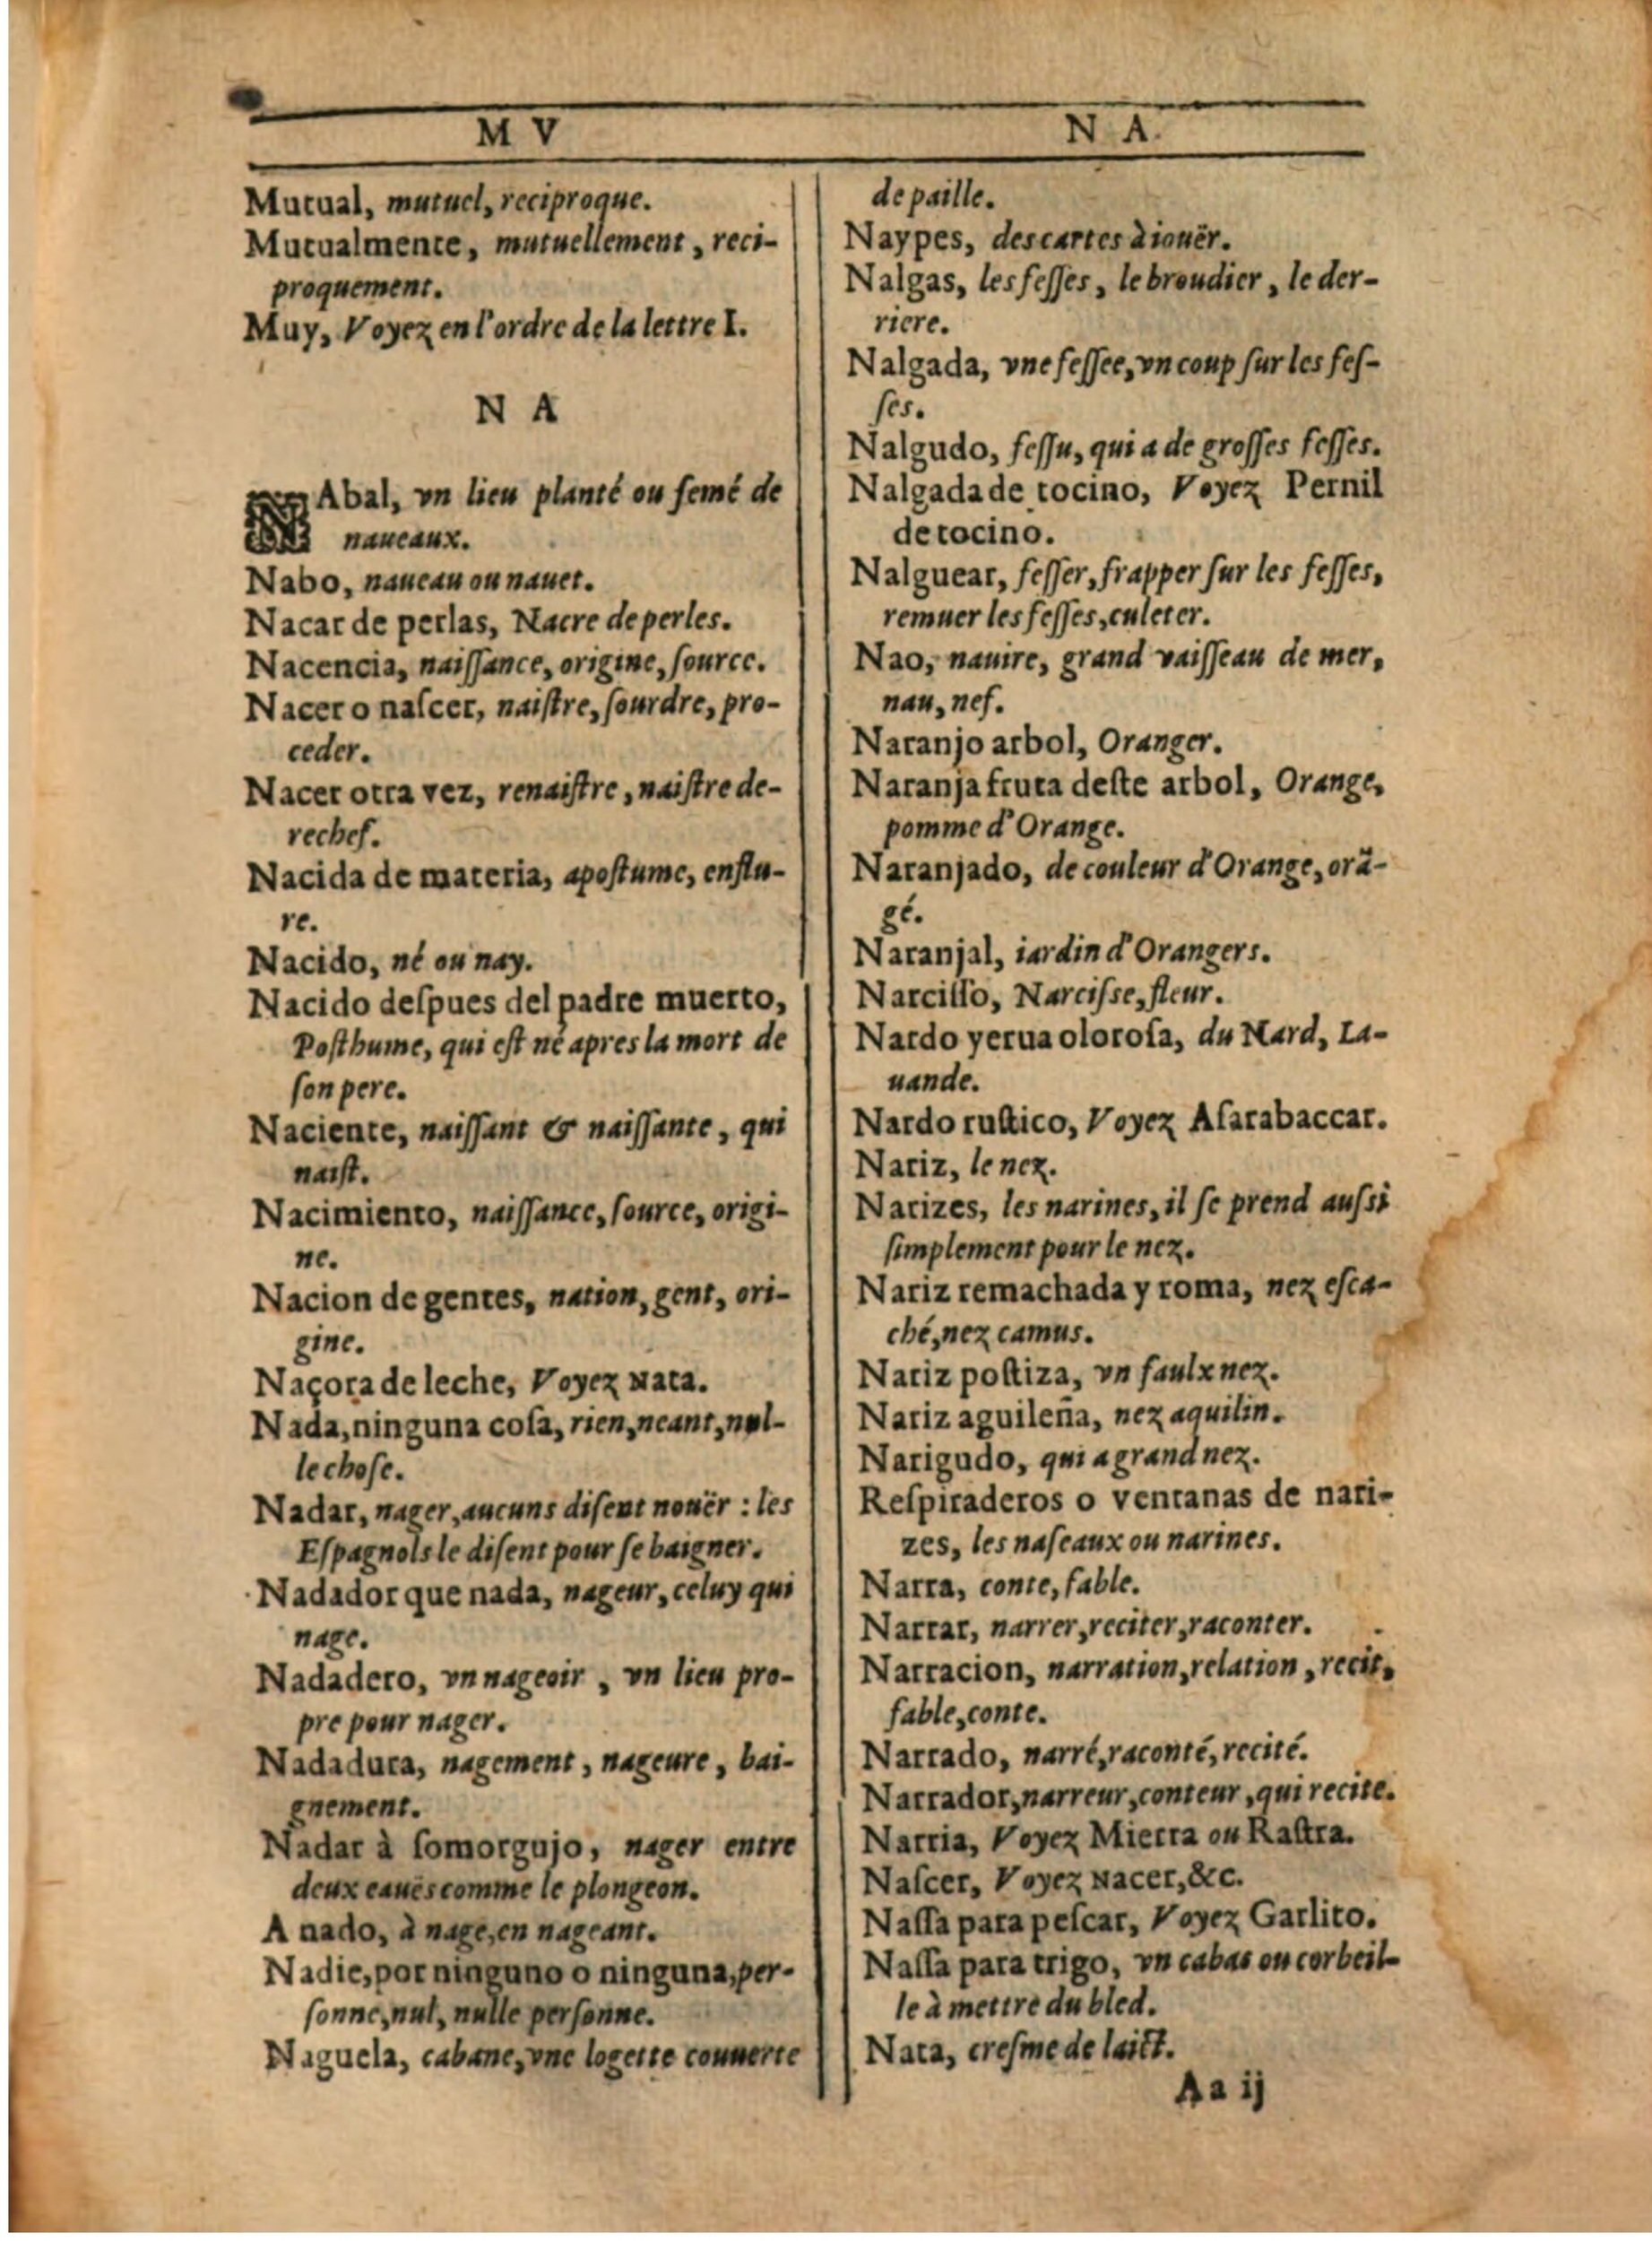 M V
N A.
Mutual, mutuel, reciproque.
Mutualmente, mutuellement, reci-
proquement.
Muy, Voyez en l'ordre de la lettre I.
N A
NAbal, vn lieu planté ou ſemé de
naueaux.
Nabo, naueau ou nauet.
Nacar de perlas, Nacre de perles.
Nacencia, naiſſance, origine, ſource.
Nacer o naſcer, naiſtre, ſourdre, pro-
ceder.
Nacer otra vez, renaiſtre, naiſtre de-
rechef.
Nacida de materia, apoſtume, enflu-
re.
Nacido, né ou nay.
Nacido deſpues del padre muerto,
Poſthume, qui eſt né apres la mort de
ſon pere.
Naciente, naiſſant & naiſſante, qui
naiſt.
Nacimiento, naiſſance, ſource, origi-
ne.
Nacion de gentes, nation, gent, ori-
gine.
Naçora de leche, Voyez Nata.
Nada, ninguna coſa, rien, neant, nul-
le choſe.
Nadar, nager, aucuns diſent nouër : les
Eſpagnols le diſent pour ſe baigner.
Nadador que nada, nageur, celuy qui
nage.
Nadadero, vn nageoir, vn lieu pro-
pre pour nager.
Nadadura, nagement, nageure, bai-
gnement.
Nadar à ſomorgujo, nager entre
deux eauës comme le plongeon.
A nado, à nage, en nageant.
Nadie, por ninguno o ninguna, per-
ſonne, nul, nulle perſonne.
Naguela, cabane, vne logette couuerte
de paille.
Naypes, des cartes à iouër.
Nalgas, les feſſes, le broudier, le der-
riere.
Nalgada, vne feſſee, vn coup ſur les feſ-
ſes.
Nalgudo, feſſu, qui a de groſſes feſſes.
Nalgada de tocino, Voyez Pernil
de tocino.
Nalguear, feſſer, frapper ſur les feſſes,
remuer les feſſes, culeter.
Nao, nauire, grand vaiſſeau de mer,
nau, nef.
Naranjo arbol, Oranger.
Naranja fruta deſte arbol, Orange,
pomme d'Orange.
Naranjado, de couleur d'Orange, orã-
gé.
Naranjal, iardin d'Orangers.
Narciſſo, Narciſse, fleur.
Nardo yerua oloroſa, du Nard, La-
uande.
Nardo ruſtico, Voyez Aſarabaccar.
Nariz, le nez.
Narizes, les narines, il ſe prend auſsi
ſimplement pour le nez.
Nariz remachada y roma, nez eſca-
ché, nez camus.
Nariz poſtiza, vn faulx nez.
Nariz aguileña, nez aquilin.
Narigudo, qui a grand nez.
Reſpiraderos o ventanas de nari-
zes, les naſeaux ou narines.
Narra, conte, fable.
Narrar, narrer, reciter, raconter.
Narracion, narration, relation, recit,
fable, conte.
Narrado, narré, raconté, recité.
Narrador, narreur, conteur, qui recite.
Narria, Voyez Mierra ou Raſtra.
Naſcer, Voyez Nacer, &c.
Naſſa para peſcar, Voyez Garlito.
Naſſa para trigo, vn cabas ou corbeil-
le à mettre du bled.
Nata, creſme de laict.
A a ij